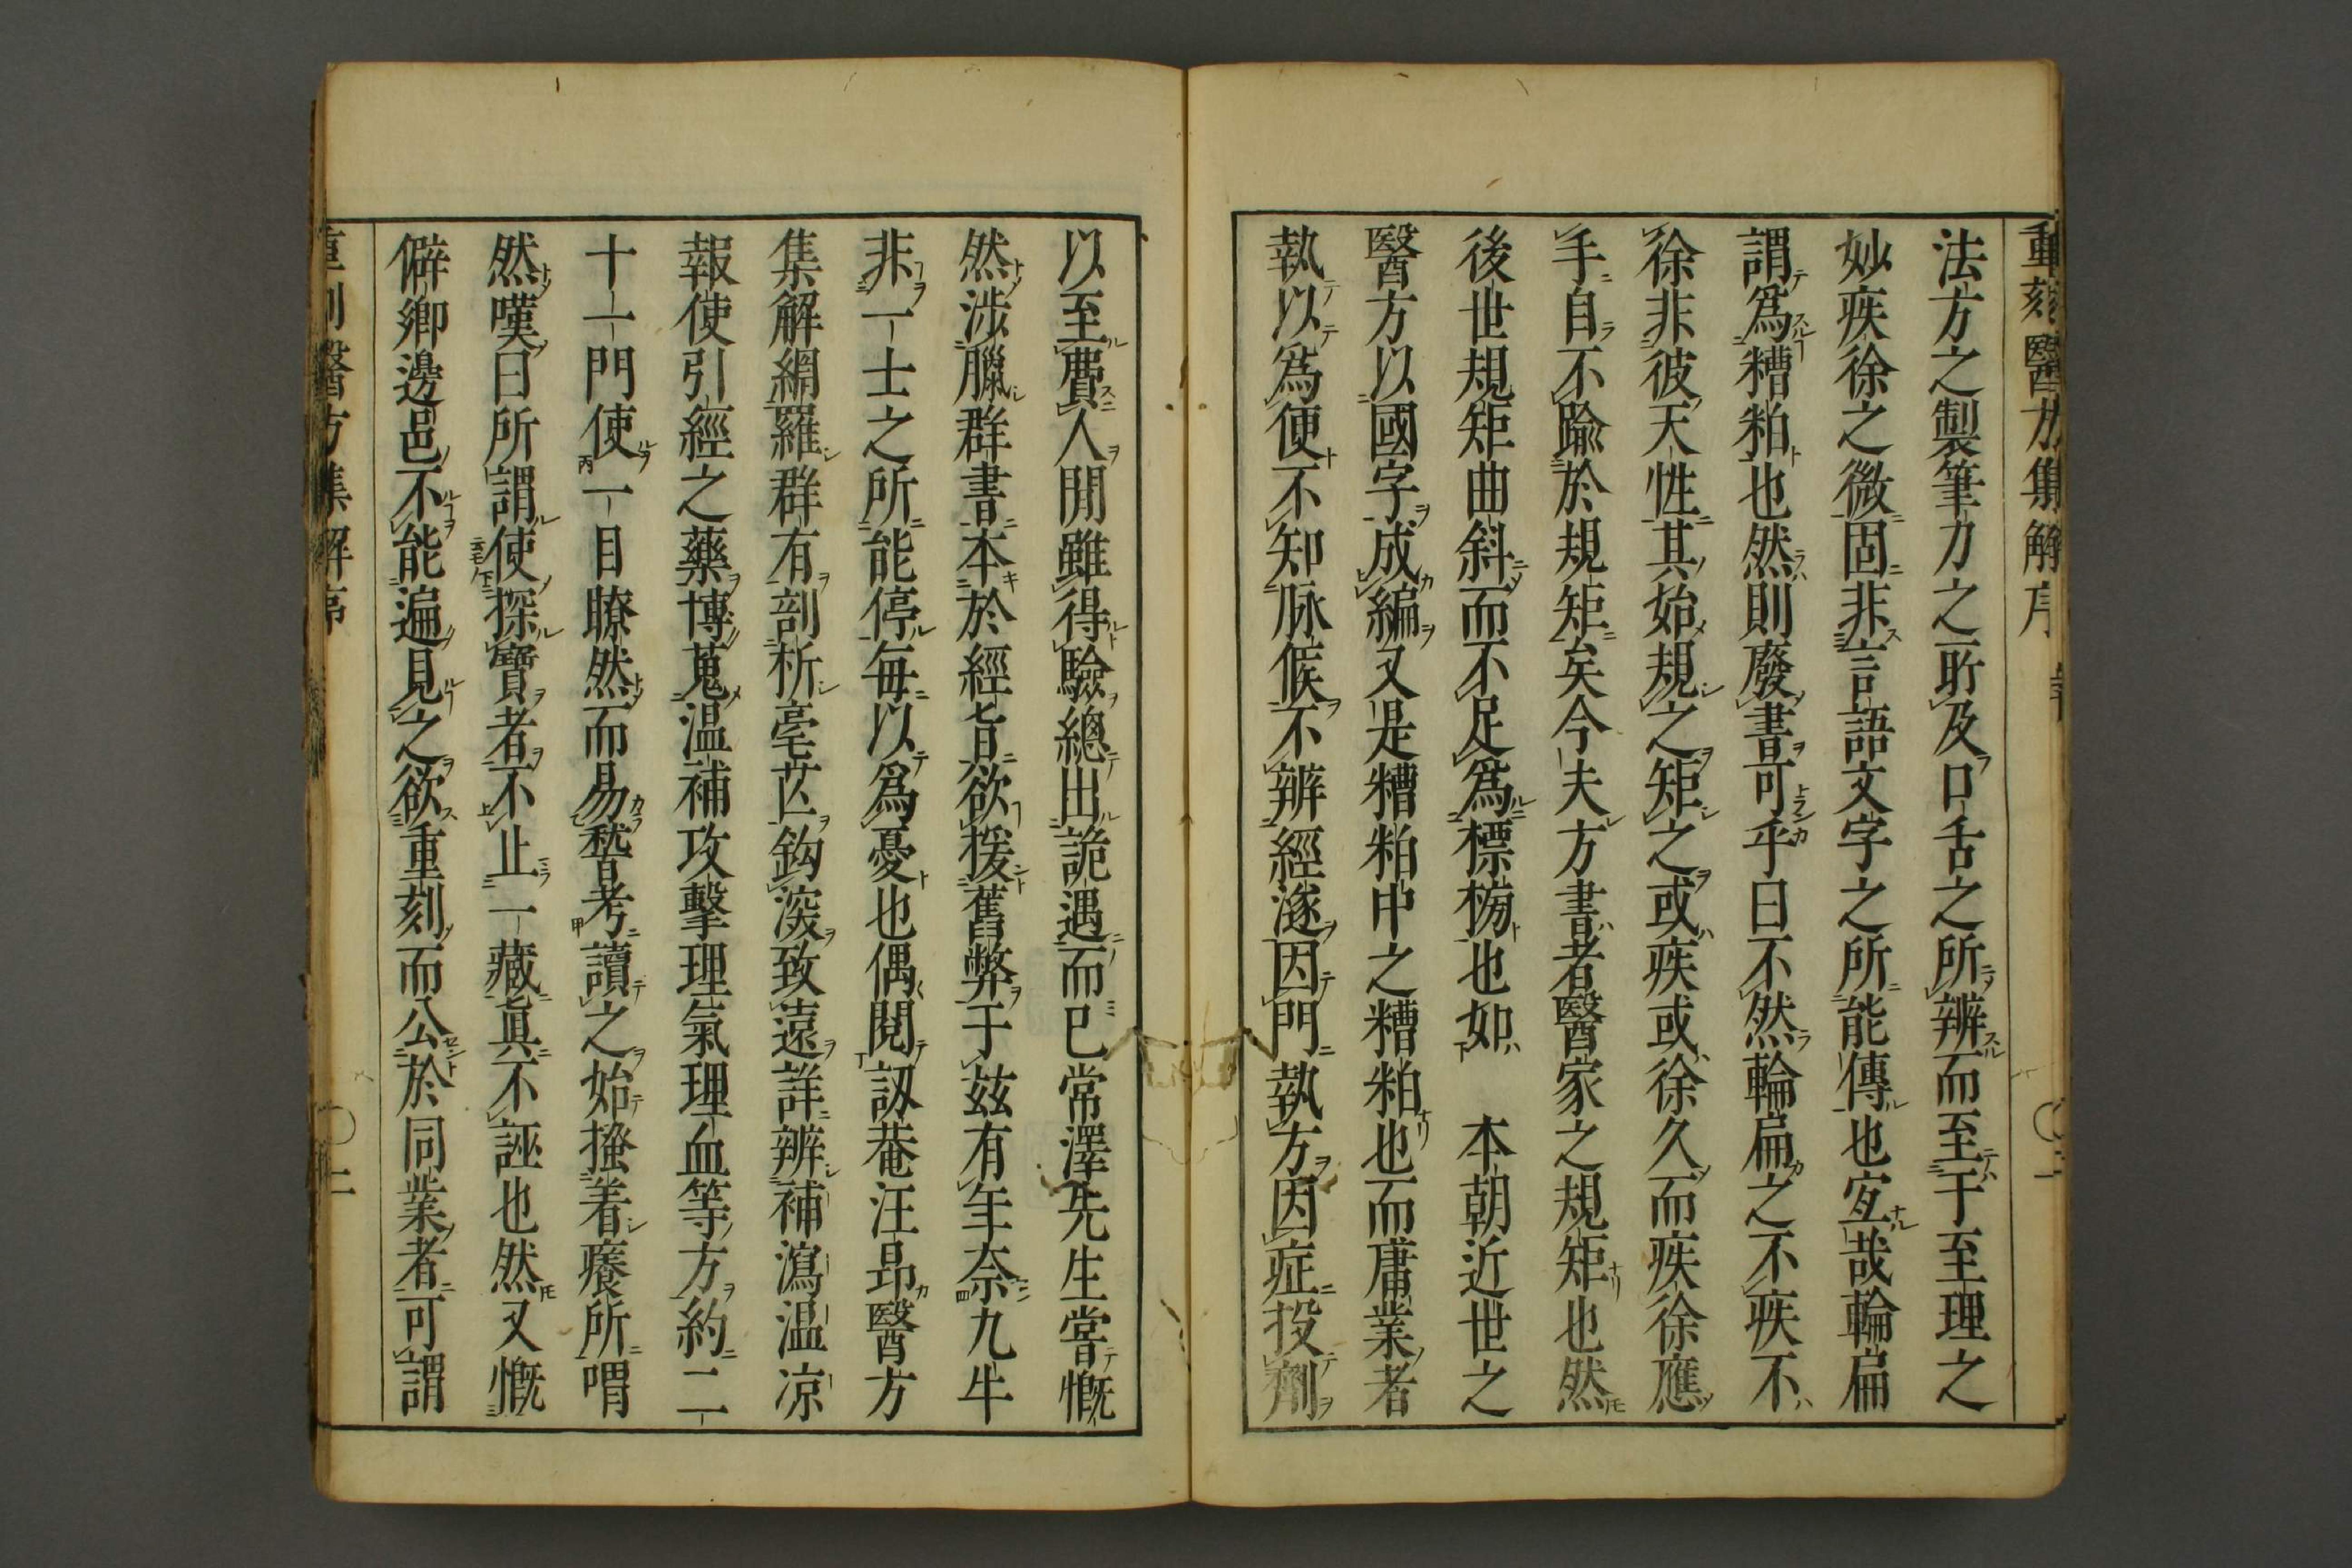 重刻醫方集解序
法方之製筆力之所及口舌之所辨而至于至理之
妙疾徐之微固非言語文字之所能傳也宜哉輪扁
謂爲糟粕也然則廢書可乎曰不然輪扁之不疾不
徐非彼天性其始規之矩之或疾或徐久而疾徐應
手自不踰於規矩矣今夫方書者醫家之規矩也然
後世規矩曲斜而不足爲標榜也如　本朝近世之
醫方以國字成編又是糟粕中之糟粕也而庸業者
執以爲便不知脉候不辨經濟因門執方因症投劑
以至費人間雖得驗總出詭遇而已常澤先生嘗慨
然涉獵群書本於經旨欲援舊弊于茲有年奈九牛
非一士之所能停每以爲憂也偶閱訒菴汪昂醫方
集解網羅群有剖析毫芒鈎深致遠詳辨補瀉温凉
報使引經之藥博蒐温補攻擊理氣理血等方約二
十一門使一目瞭然而易稽考讀之始搔着癢所喟
然嘆曰所謂使探寶者不止一藏眞不誣也然又慨
僻鄉邊邑不能遍見之欲重刻而公於同業者可謂
重刻醫方集解序
二